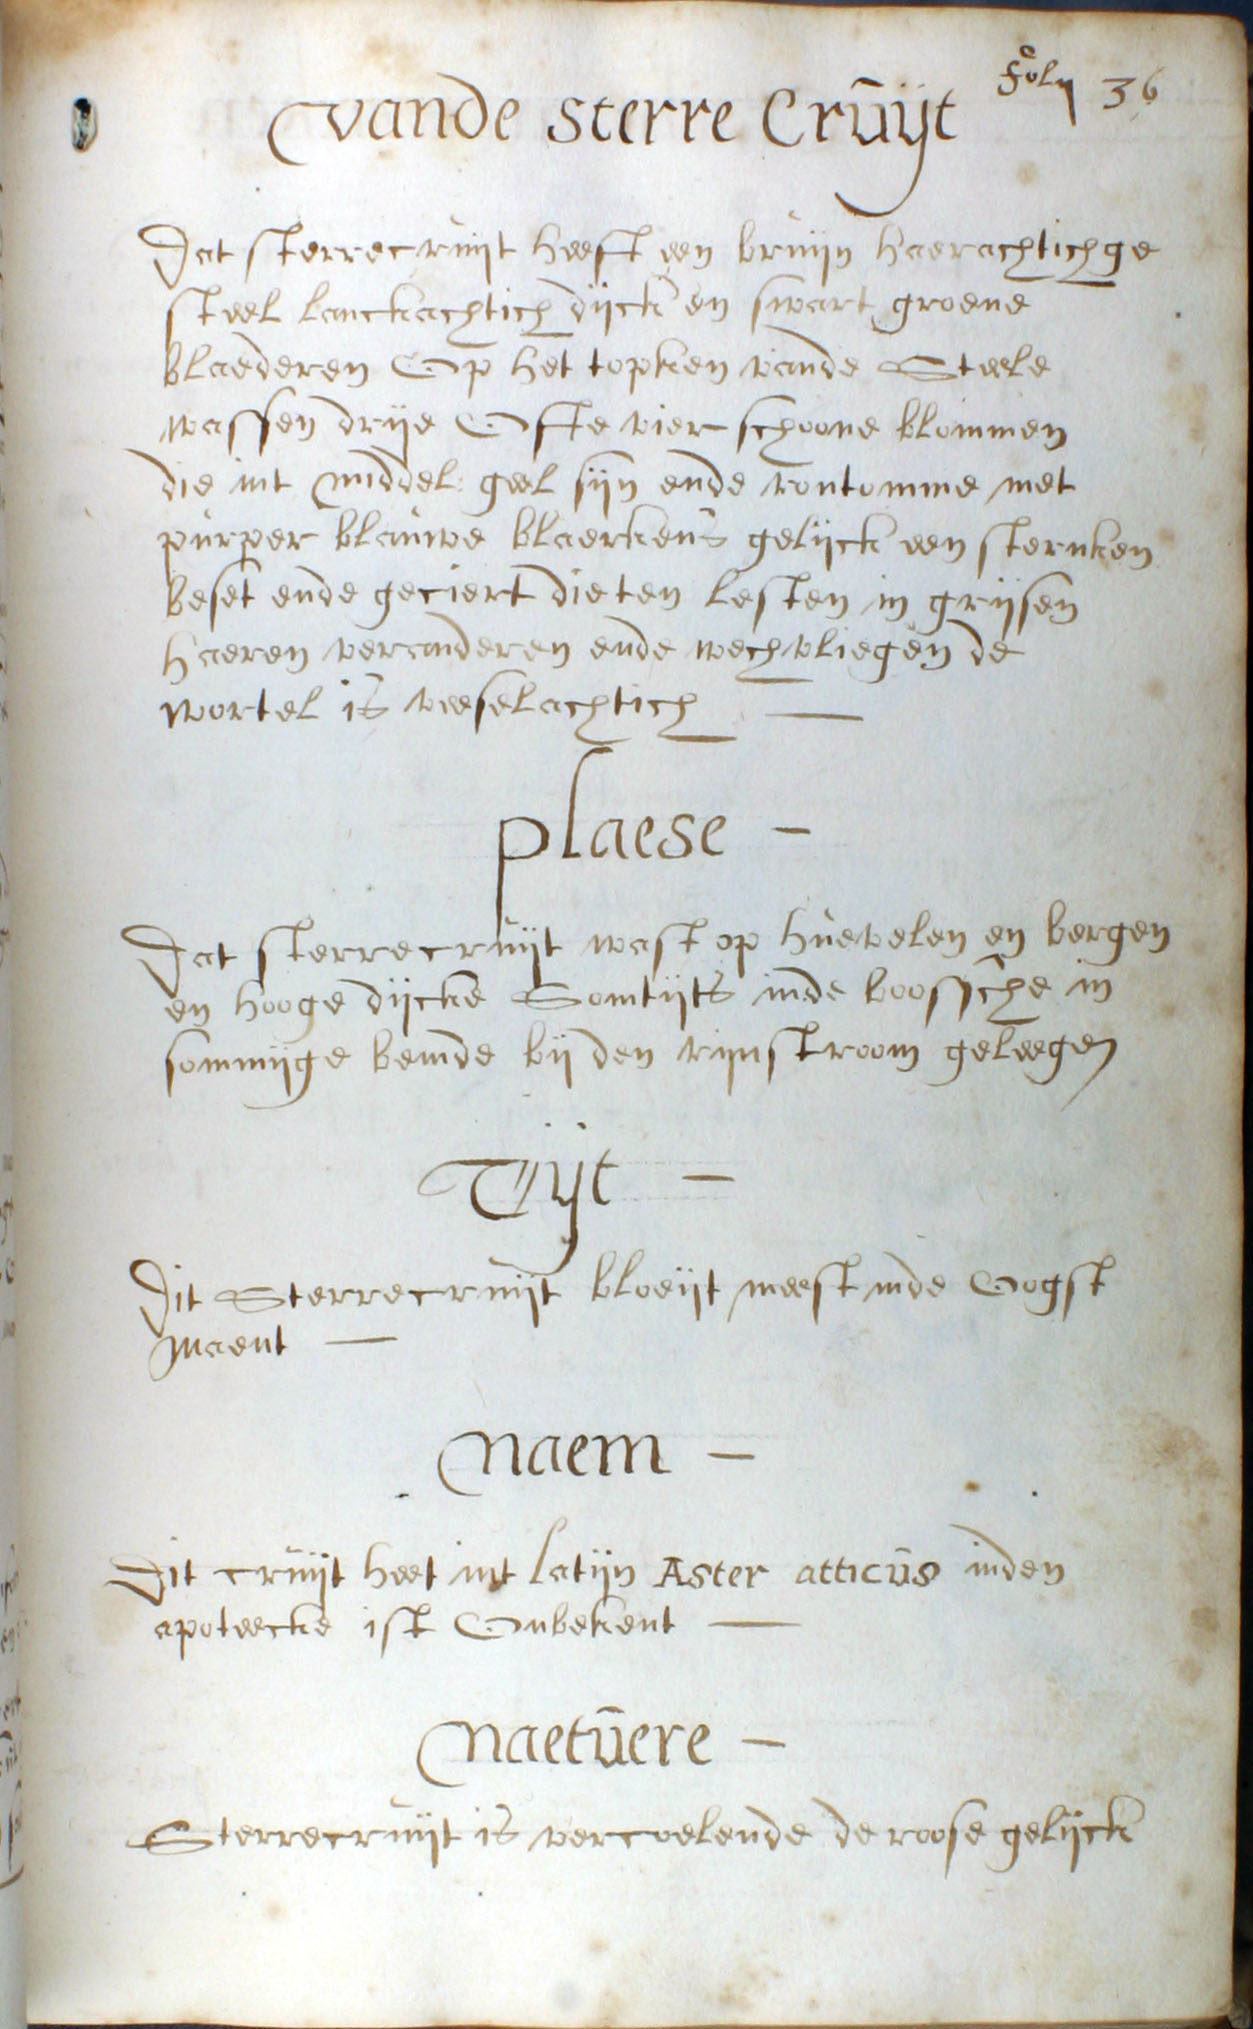 Fol 36
vande sterre Crūÿt
Dat sterrecruijt heeft een bruijn haerachtichge
steel lanckachtich dijck en swart groene
blaederen Op het topken vande Steele
wassen drije Ofte vier schoone blommen
die int middel geel sijn ende rontomme met
purper blauwe blaerkens gelijck een sternken
beset ende geciert die ten lesten in grijsen
haeren veranderen ende wechvliegen de
wortel is veeselachtich —
plaese –
Dat sterrecruijt wast op huevelen en bergen
en hooge dijcke Somtijts inde boossche in
sommijge bemde bij den rijnstroom geleegen
Tijt –
Dit Sterrecruijt bloeijt meest inde Oogst
maent —
Naem –
Dit cruijt heet int latijn Aster atticūs inden
apoteecke ist Onbekent —
Naetūere –
Sterrecruijt is vercoelende de roose gelijck